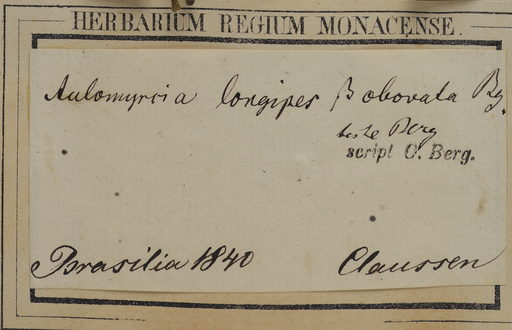 HERBARIUM REGIUM MONACENSE.
Aulomyrcia longipes β obovata Bg.
teste Berg
script O. Berg.
Brasilia 1840 Claussen